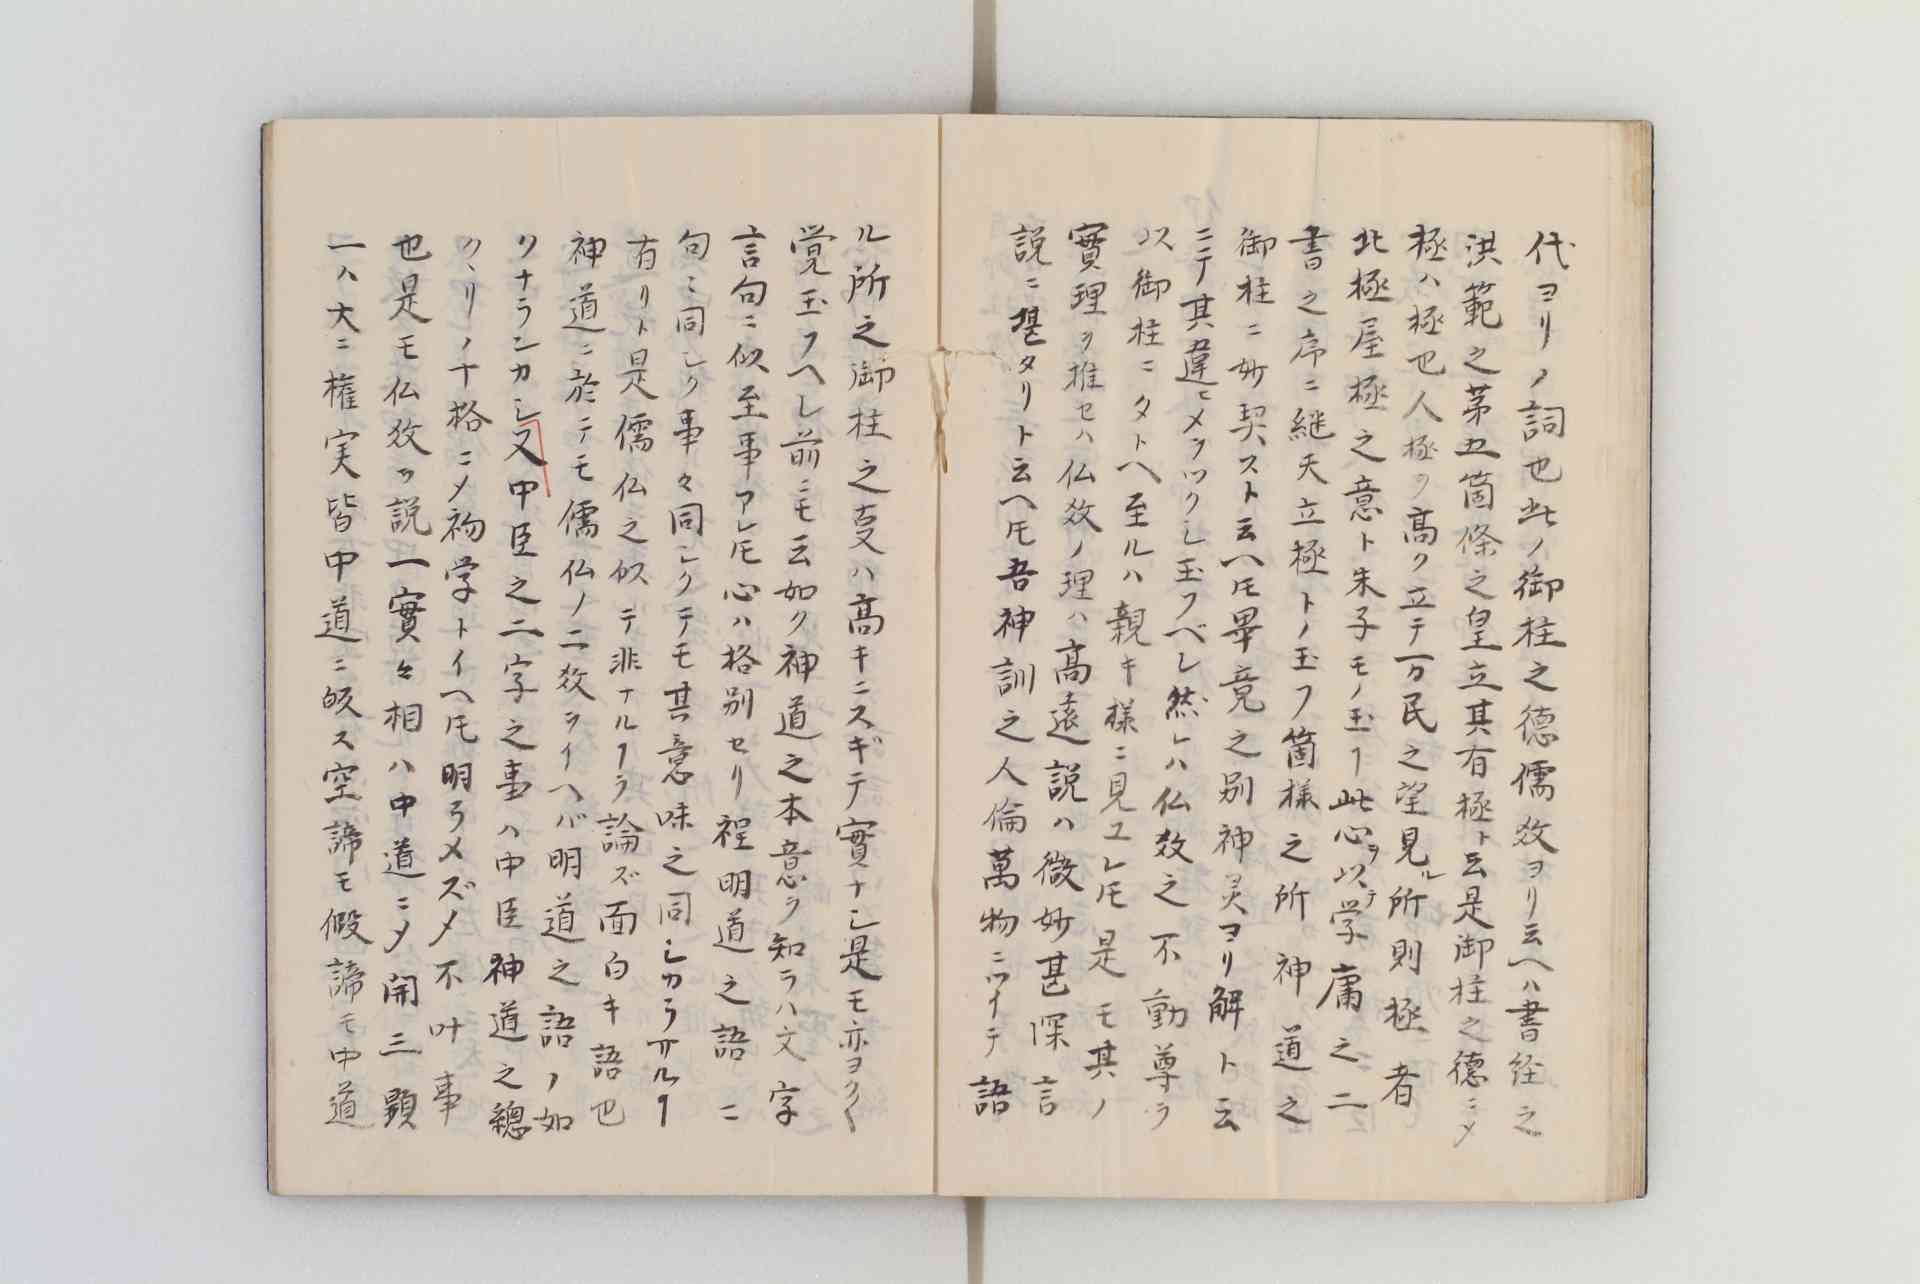 代ヨリノ詞也此ノ御柱之德儒教ヨリ云ヘハ書経之
洪範之第五箇條之皇立其有極ト云是御柱之德ニメ
極ハ極也人極ヲ高ク立テ万民之望見ル所則極者
北極屋極之意ト朱子モノ玉フ此心ヲ以テ学庸之二
書之序ニ継天立極トノ玉フ箇様之所神道之
御柱ニ妙契スト云ヘ𪜈畢竟之別神灵ヨリ解ト云
ニテ其違ヒメヲツクシ玉フベシ然レハ仏教之不動尊ヲ
以御柱ニタトヘ至ルハ親キ様ニ見ユレ𪜈是モ其ノ
實理ヲ推セハ仏教ノ理ハ高遠説ハ微妙甚深言
説ニ堪タリト云ヘ𪜈吾神訓之人倫萬物ニツイテ語
ル所之御柱之叓ハ高キニスギテ實ナシ是モ亦ヨク〱
覚玉フヘシ前ニモ云如ク神道之本意ヲ知ラハ文字
言句ニ似至事アレ𪜈心ハ格別セリ程明道之語ニ
句ミ同シク事々同シクテモ其意味之同シカラザルヿ
有リト是儒仏之似テ非ナルヿヲ論ズ面白キ語也
神道ニ於テモ儒仏ノ二教ヲイヘバ明道之語ノ如
クナランカシ又中臣之二字之事ハ中臣神道之總
クヽリノ十格ニメ初学トイヘ𪜈明ラメズメ不叶事
也是モ仏教ヲ説一實々相ハ中道ニメ開三顕
一ハ大ニ権実皆中道ニ皈ス空諦モ假諦モ中道